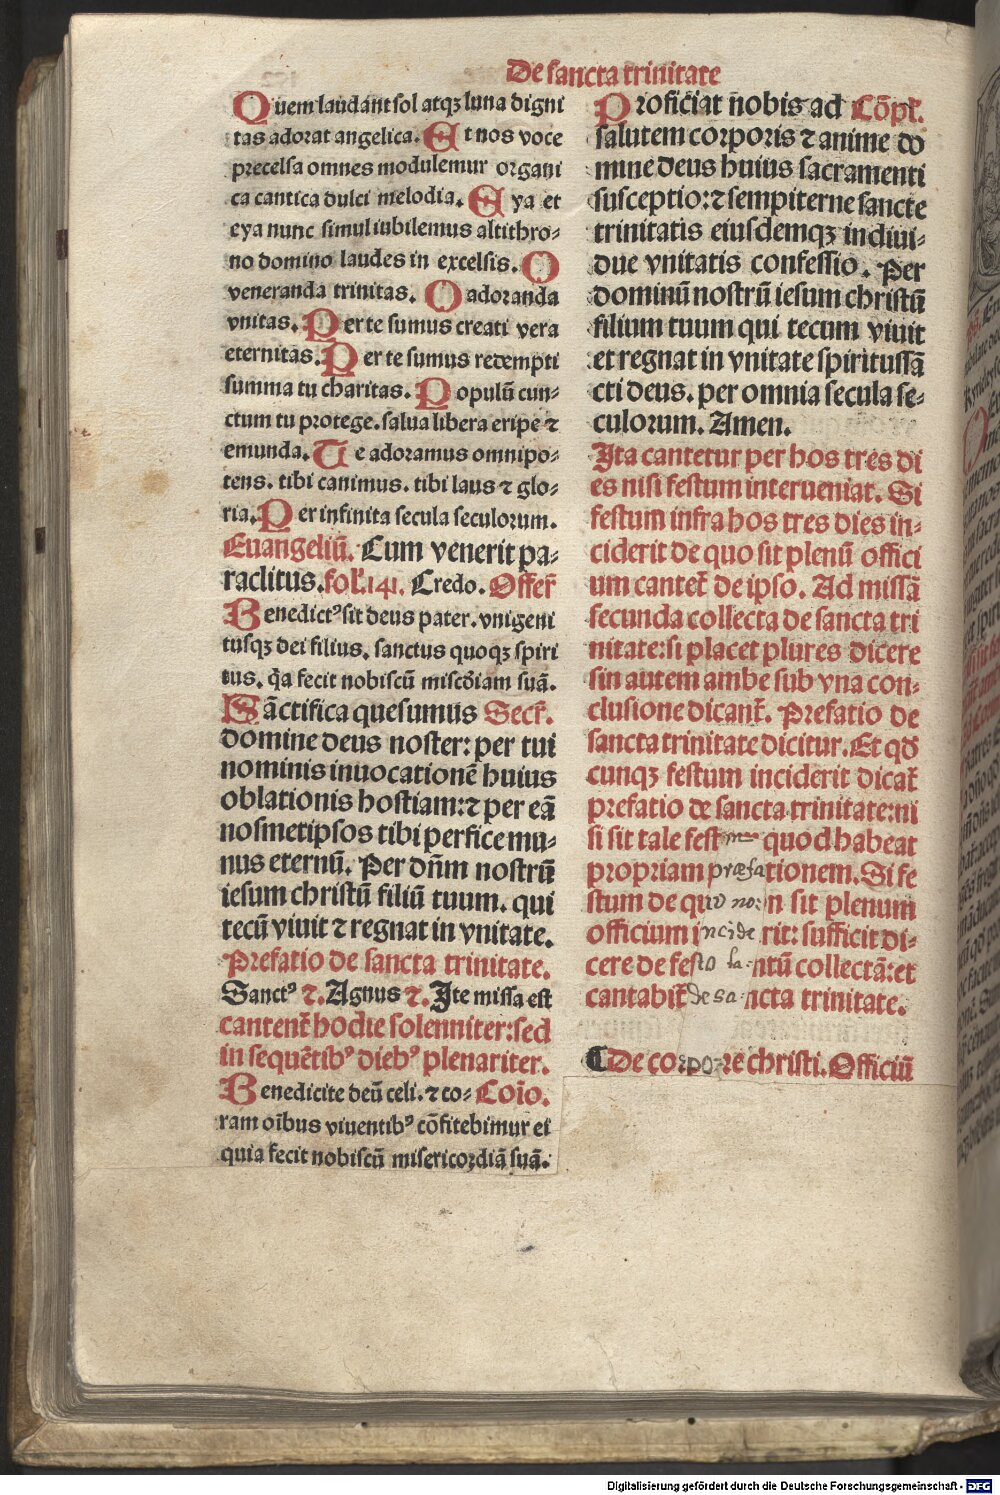 De sancta trinitate
Quem laudant sol atqȝ luna digni
tas adorat angelica. Et nos voce
precelsa omnes modulemur organi
ca cantica dulci melodia. Eya et
eya nunc simul iubilemus altithro-
no domino laudes in excelsis. O
veneranda trinitas. O adoranda
vnitas. Per te sumus creati vera
eternitas. Per te sumus redempti
summa tu charitas. Populū cun-
ctum tu protege. salua libera eripe ⁊
emunda. Te adoramus omnipo-
tens. tibi canimus. tibi laus ⁊ glo-
ria. Per infinita secula seculorum.
Euangeliū. Cum venerit pa-
raclitus. fol. 141. Credo. Offer̄
Benedictꝰ sit deus pater. vnigeni
tusqȝ dei filius. sanctus quoqȝ spiri
tus. q̄a fecit nobiscū miscd̄iam suā.
Sāctifica quesumus Secr̄.
domine deus noster: per tui
nominis inuocationē huius
oblationis hostiam: ⁊ per eā
nosmetipsos tibi perfice mu-
nus eternū. Per dn̄m nostrū
iesum christū filiū tuum. qui
tecū viuit ⁊ regnat in vnitate.
Prefatio de sancta trinitate.
Sanctꝰ ⁊. Agnus ⁊. Ite missa est
cantent̄ hodie solenniter: sed
in sequētibꝰ diebꝰ plenariter.
Benedicite deū celi. ⁊ co- Cōio.
ram oībus viuentibꝰ cōfitebimur ei
quia fecit nobiscū misericordiā suā.
Proficiat nobis ad Cōpl̄.
salutem corporis ⁊ anime do
mine deus huius sacramenti
susceptio: ⁊ sempiterne sancte
trinitatis eiusdemqȝ indiui-
due vnitatis confessio. Per
dominū nostrū iesum christū
filium tuum qui tecum viuit
et regnat in vnitate spiritussā
cti deus. per omnia secula se-
culorum. Amen.
Ita cantetur per hos tres di
es nisi festum interueniat. Si
festum infra hos tres dies in-
ciderit de quo sit plenū offici
um cantet̄ de ipso. Ad missā
secunda collecta de sancta tri
nitate: si placet plures dicere
sin autem ambe sub vna con-
clusione dicant̄. Prefatio de
sancta trinitate dicitur. Et qd̄
cunqȝ festum inciderit dicat̄
prefatio de sancta trinitate: ni
si sit tale festm quod habeat
propriam præfationem. Si fe
stum de quo non sit plenum
officium inciderit: sufficit di-
cere de festo tantū collectā: et
cantabit̄ de sancta trinitate.
¶ De corpore christi. Officiū
Digitalisierung gefördert durch die Deutsche Forschungsgemeinschaft - DFG